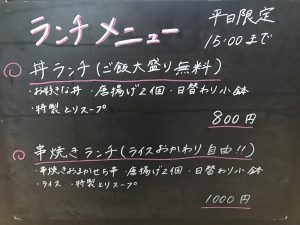 ランチメニュー
平日限定
15:00まで
丼ランチ(ご飯大盛り無料)
・お好きな丼 ・唐揚げ2個 ・日替わり小鉢
・特製とりスープ
800円
串焼きランチ(ライスおかわり自由!!)
・串焼きおまかせ5本 ・唐揚げ2個 ・日替わり小鉢
・ライス ・特製とりスープ
1000円